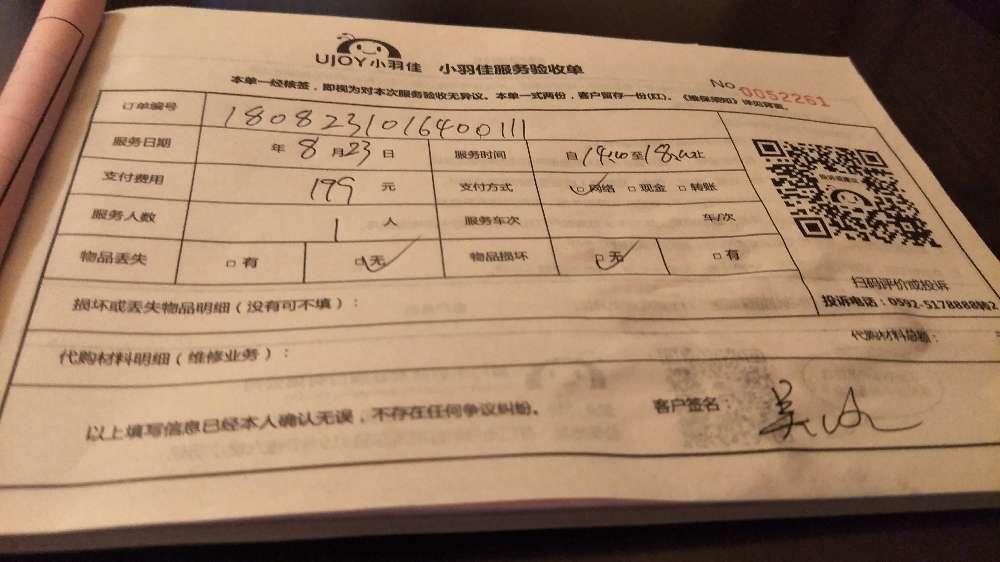 UJOY小羽佳 小羽佳服务验收单
No 0052261
本单一经核签，即视为对本次服务验收无异议。本单一式两份，客户留存一份(红)。《维保须知》详见背面。
订单编号 1808231016400111
服务日期 年 8 月 23 日 服务时间 自 14:00 至 18:00 止
支付费用 199 元 支付方式 网络 现金 转账
服务人数 1 人 服务车次 车/次
物品丢失 有 无 物品损坏 无 有
扫码评价或投诉
损坏或丢失物品明细（没有可不填）：
投诉电话：0592-5178888
代购材料明细（维修业务）：
代购材料总额：
以上填写信息已经本人确认无误，不存在任何争议纠纷。
客户签名：